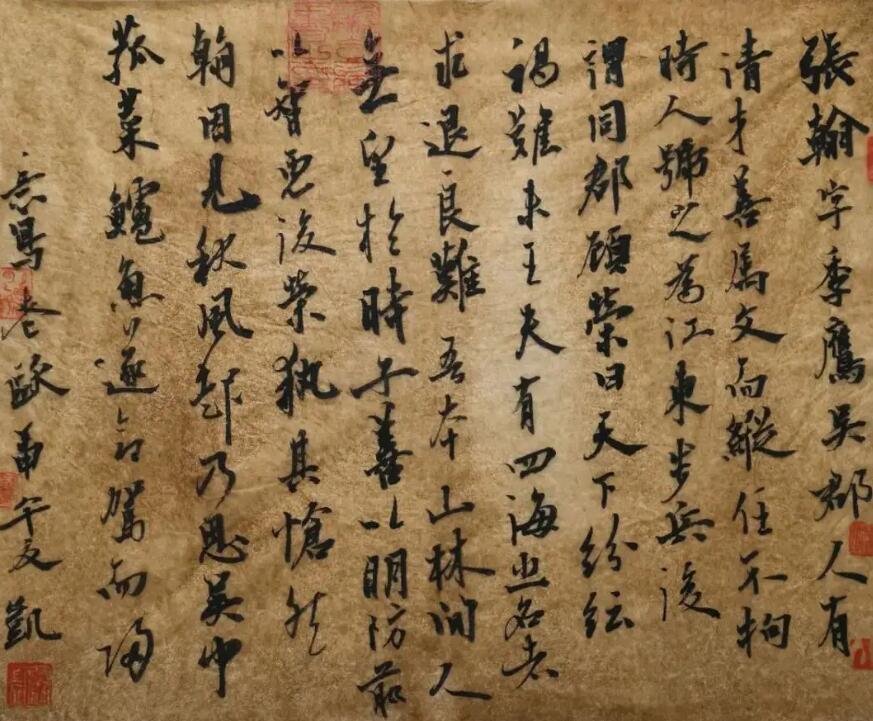 張翰字季鷹吳郡人有
清才善屬文而縱任不拘
時人號之為江東步兵後
謂同郡顧榮曰天下紛紜
禍難未已夫有四海之名者
求退良難吾本山林間人
無望於時子善以明防前
以智慮後榮執其愴然
翰因見秋風起乃思吳中
菰菜鱸魚遂命駕而歸
意寫老歐甲午文凱